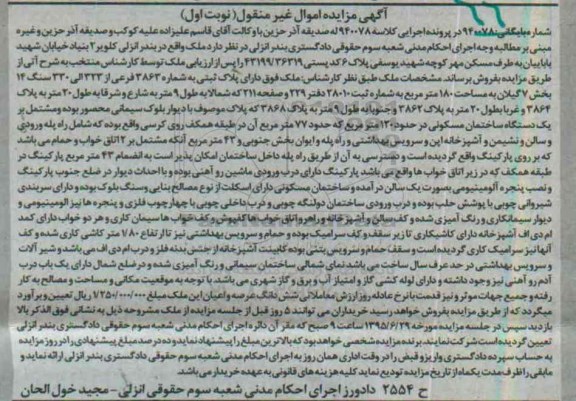 آگهی مزایده اموال غیر منقول (نوبت اول)
شماره بایگانی: ۹۴۰۰۷۸ در پرونده اجرایی کلاسه ۹۴۰۰۷۸ له صدیقه آذر حزین با وکالت آقای قاسم علیزاده علیه کوکب و صدیقه آذر حزین و غیره
مبنی بر مطالبه وجه اجرای احکام مدنی شعبه سوم حقوقی دادگستری بندر انزلی در نظر دارد ملک واقع در بندر انزلی کلویر ۲ بنیاد خیابان شهید
بابائیان به طرف مسکن مهر کوچه شهید یوسفی پلاک ۶ کد پستی ۴۳۱۹۹/۳۶۳۱۹ را پس از ارزیابی ملک توسط کارشناس منتخب به شرح آتی از
طریق مزایده بفروش برساند. مشخصات ملک طبق نظر کارشناس: ملک فوق دارای پلاک ثبتی به شماره ۳۸۶۳ فرعی از ۳۲۳ الی ۳۳۰ سنگ ۱۴
بخش ۷ گیلان به مساحت ۱۸۰ متر مربع به شماره ثبت ۲۸۰۱۰ دفتر ۲۲۹ و صفحه ۲۱۱ که شمالا به طول ۹ متر به شارع و شرقا به طول ۲۰ متر به پلاک
۳۸۶۴ و غربا بطول ۲۰ متر به پلاک ۳۸۶۲ و جنوبا به طول ۹ متر به پلاک ۳۸۶۸ که پلاک موصوف با دیوار بلوک سیمانی محصور بوده و مشتمل بر
یک دستگاه ساختمان مسکونی در حدود ۱۲۰ متر مربع که حدود ۷۷ متر مربع آن در طبقه همکف روی کرسی واقع بوده که شامل راه پله ورودی
و سالن و نشیمن و آشپزخانه اپن و سرویس بهداشتی و راه پله و ایوان بخش جنوبی و ۴۳ متر مربع آنکه مشتمل بر ۲ اتاق خواب و حمام می باشد
که بر روی پارکینگ واقع گردیده است و دسترسی به آن از طریق راه پله داخل ساختمان امکان پذیر است به انضمام ۴۳ متر مربع پارکینگ در
طبقه همکف که در زیر اتاق خواب ها واقع می باشد پارکینگ دارای درب ورودی ماشین رو آهنی بوده و با احداث دیوار در ضلع جنوب پارکینگ
و نصب پنجره آلومینیومی بصورت یک سالن در آمده و ساختمان مسکونی دارای اسکلت از نوع مصالح بنایی و سنگ بلوک بوده و دارای سربندی
شیروانی چوبی با پوشش حلب بوده و درب ورودی ساختمان دولنگه چوبی و درب داخلی چوبی با چهارچوب فلزی و پنجره ها نیز آلومینیومی و
دیوار سیمانکاری و رنگ آمیزی شده و کف سالن و آشپزخانه و راهرو اتاق خواب ها کفپوش و کف خواب ها سیمان کاری و هر دو خواب دارای کمد
ام دی اف آشپزخانه دارای کاشیکاری تا زیر سقف و کف سرامیک بوده و حمام و سرویس بهداشتی نیز تا ارتفاع ۱/۸۰ متر کاشی کاری شده و کف
آنها نیز سرامیک کاری گردیده است و سقف حمام و سرویس بتنی بوده کابینت آشپزخانه از جنس بدنه فلز و درب ام دی اف می باشد و شیر آلات
و سرویس بهداشتی در حد عرف سال ساخت می باشد نمای شمالی ساختمان سیمانی و رنگ آمیزی شده و در ضلع شمال دارای یک باب درب
آدم رو آهنی نیز وجود داشته و دارای لوله کشی گاز و امتیاز آب و برق و گاز شهری می باشد. با توجه به موقعیت مکانی و مساحت و مصالح به کار
رفته و جمیع جهات موثر و نیز قدمت بنا نرخ عادله روز ارزش معاملاتی شش دانگ عرصه و اعیان این ملک مبلغ ۱/۲۵۰/۰۰۰/۰۰۰ ریال تعیین و برآورد
میگردد که از طریق مزایده بفروش خواهد رسید خریداران می توانند ۵ روز قبل از جلسه مزایده از ملک مشروحه ذیل به نشانی فوق الذکر بالا
بازدید سپس در جلسه مزایده مورخه ۱۳۹۵/۶/۲۹ ساعت ۹ صبح که مقر آن دائره اجرای احکام مدنی شعبه سوم حقوقی دادگستری بندر انزلی
تعیین گردیده است شرکت نمایند. برنده مزایده شخصی خواهد بود که بالاترین مبلغ را پیشنهاد نماید و ده درصد مبلغ پیشنهادی را در روز مزایده
به حساب سپرده دادگستری واریز و قبض را در وقت اداری همان روز به اجرای احکام مدنی شعبه سوم حقوقی دادگستری بندر انزلی ارائه نماید و
مابقی را ظرف مدت یکماه از تاریخ مزایده تودیع نماید کلیه هزینه های قانونی به عهده خریدار می باشد.
ح ۲۵۵۴ دادورز اجرای احکام مدنی شعبه سوم حقوقی انزلی - مجید خول الحان